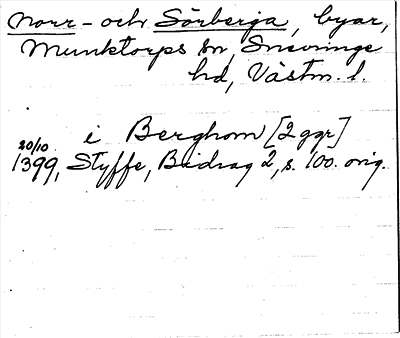 Norr- och Sörberga, byar,
Munktorps sn, Snevringe
hd, Västm. l.
i Berghom [2 ggr]
20/10
1399, Styffe, Bidrag 2, s. 100. orig.